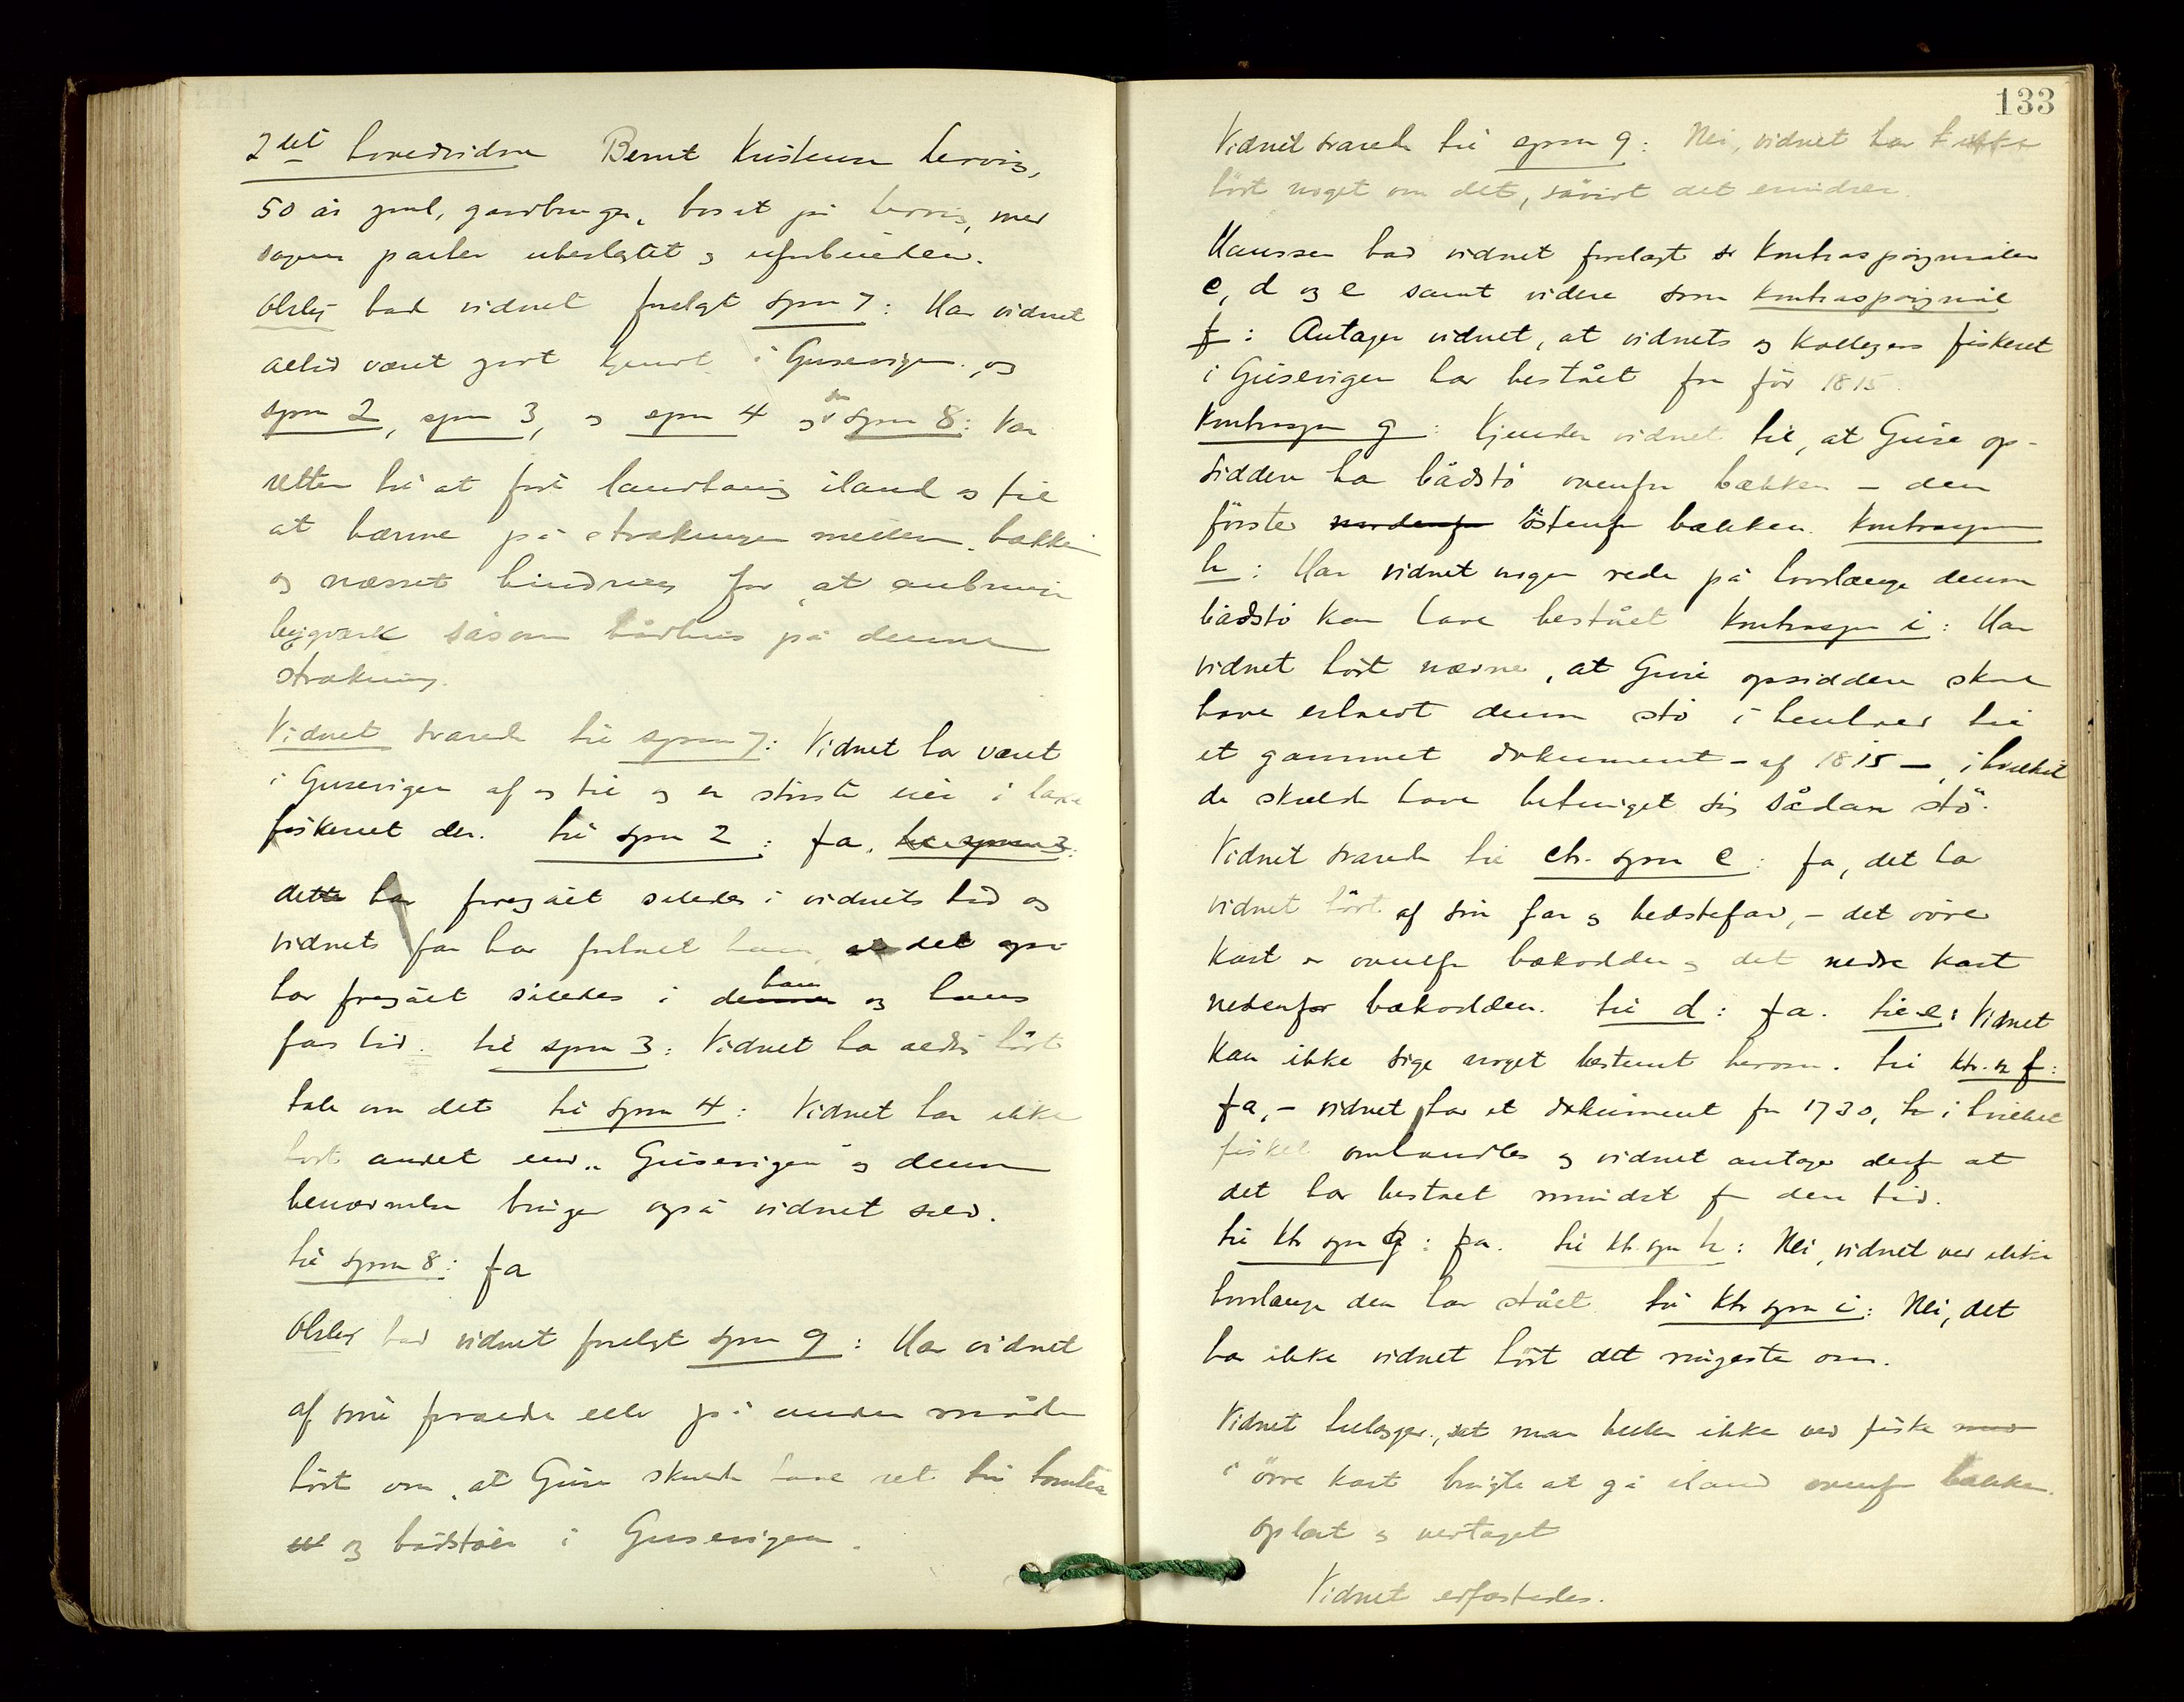 2det hovedvidne Bernt Kristensen Lervig,
50 år gml, gardbruger, bosat på Lervig, med
sagens parter ubeslægtet og uforbunden.
Olsby bad vidnet forelagt spm 7: Har vidnet
altid været godt kjendt i Gusevigen, og
spm 2, spm 3, og spm 4 og som spm 8: Var
retten til at fore landtaug iland og til
at bærme på strækningen mellem bækken
og næsset hindring for, at anbringe
bygværk såsom bådhus på denne
strækning.
Vidnet svarede til spm 7: Vidnet har været
i Gusevigen af og til og er største eier i laxe
fiskeriet der. til spm 2: Ja, til spm 3:
dette har foregået således i vidnets tid og
vidnets far har fortalt ham, at det også
har foregået således i dennes hans og hans
fars tid. til spm 3: Vidnet har aldri hört
tale om det til spm 4: Vidnet har ikke
hört andet end "Gusevigen" og denne
benævnelse bruger også vidnet selv.
til spm 8: Ja
Olsby bad vidnet forelagt spm 9: Har vidnet
af sine forældre eller på anden måde
hört om, at Guse skulde have ret til tomter
og bådstöer i Gusevigen.
133
Vidnet svarede til spm 9: Nei, vidnet har ikke
hört noget om det, såvidt det erindrer.
Hanssen bad vidnet forelagt kontraspörgsmålene
c, d og e samt videre som kontraspörgsmål
f: Antager vidnet, at vidnets og kollegers fiskeret
i Gusevigen har bestået fra för 1815.
Kontraspm g: Kjender vidnet til, at Guse op-
sidderne har bådstö ovenfor bækken - den
förste nordenfor östenfor bækken. Kontraspm
h: Har vidnet nogen rede på hvorlænge denne
bådstö kan have bestået Kontraspm i: Har
vidnet hört nævne, at Guse opsiddere skal
have erhvervet denne stö i henhold til
et gammelt dokument - af 1815 -, i hvilket
de skulde have betinget sig sådan stö.
Vidnet svarede til ktr. spm c: Ja, det har
vidnet hört af sin far og bedstefar, - det övre
kast er ovenfor bækodden og det nedre kast
nedenfor bækodden. til d: Ja. til e: Vidnet
kan ikke sige noget bestemt herom. til ktr. sp f:
Ja, - vidnet har et dokument fra 1730, i hvilket
fisket omhandles og vidnet antager derfor at
det har bestået mindst fra den tid.
til ktr spm g: Ja. til ktr. spm h: Nei, vidnet ved ikke
hvorlænge den har stået. til ktr spm i: Nei, det
har ikke vidnet hört det ringeste om.
Vidnet tillægger, at man heller ikke ved fiske
i övre kast brugte at gå iland ovenfor bækken.
oplæst og vedtaget
Vidnet edfæstedes.